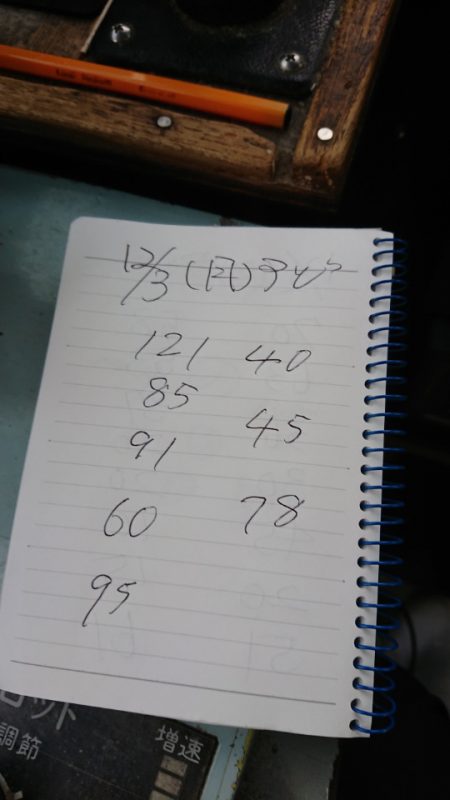 12/3(日)アジ
121 40
85
45
91
60 78
95
ット
調節
増速